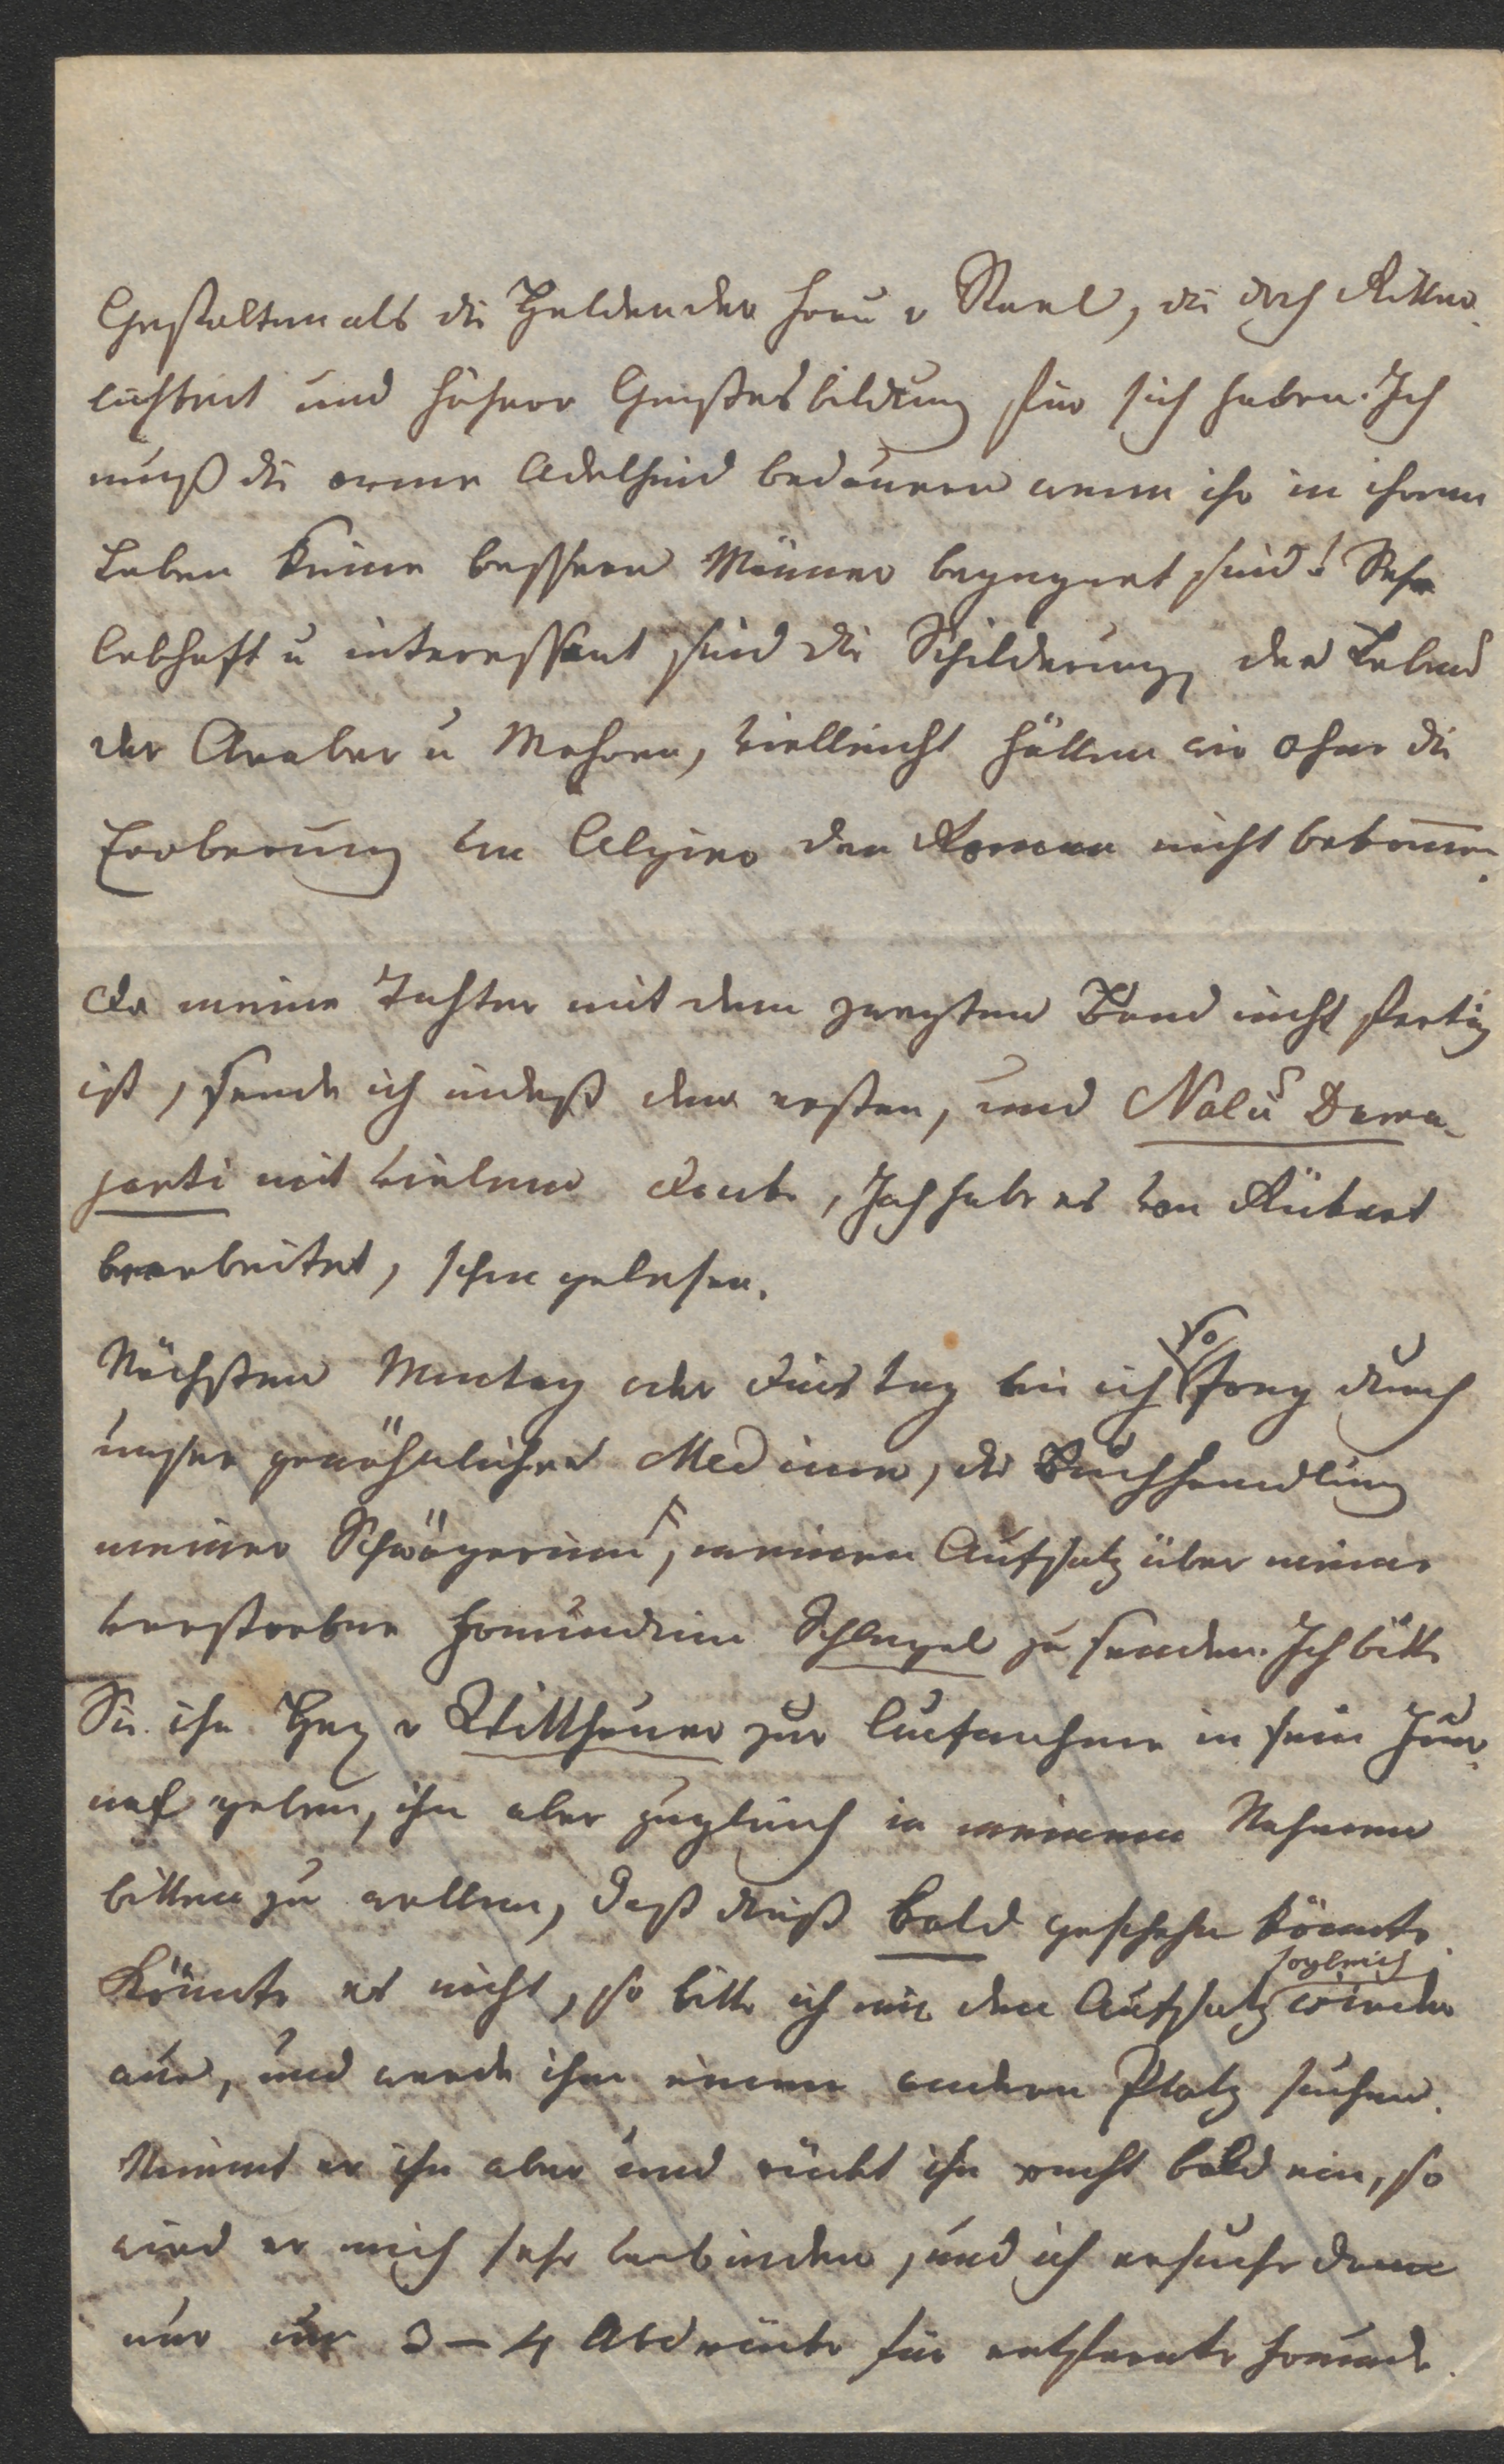 Gestalten als die Helden der Frau v Stael, die doch Ritter-
lichkeit und höhere Geistesbildung für sich haben. Ich
muß die arme Adelheid bedauern wenn ihr in ihrem
Leben keine bessern Männer begegnet sind! Sehr
lebhaft u interessant sind die Schilderung des Lebens
der Araber u Mohren, vielleicht hätten wir ohne die
Eroberung von Algier den Roman nicht bekommen.
Da meine Tochter mit dem zweyten Band nicht fertig
ist, sende ich indeß den ersten, und Nalus Dama-
janti mit vielem Danke, Ich habe es von Rükert
bearbeitet, schon gelesen.
Nächsten Montag oder Dinstag bin ich so frey durch
unser gewöhnliches Medium, die Buchhandlung
meiner Schwägerinn, meinen Aufsatz über meine
verstorbne Freundinn Schlegel zu senden. Ich bitte
Sie ihn H v Witthauer zur Aufnahme in sein Jour-
nal geben, ihn aber zugleich in meinem Nahmen
bitten zu wollen, daß dieß bald geschehn könnte.
Könnte es nicht, so bitte ich mir den Aufsatz sogleich wieder
aus, und werde ihm einen andern Platz suchen.
Nimmt er ihn aber und rückt ihn recht bald ein, so
wird er mich sehr verbinden, und ich ersuche dann
nur um 3-4 Abdrücke für entfernte Freunde.